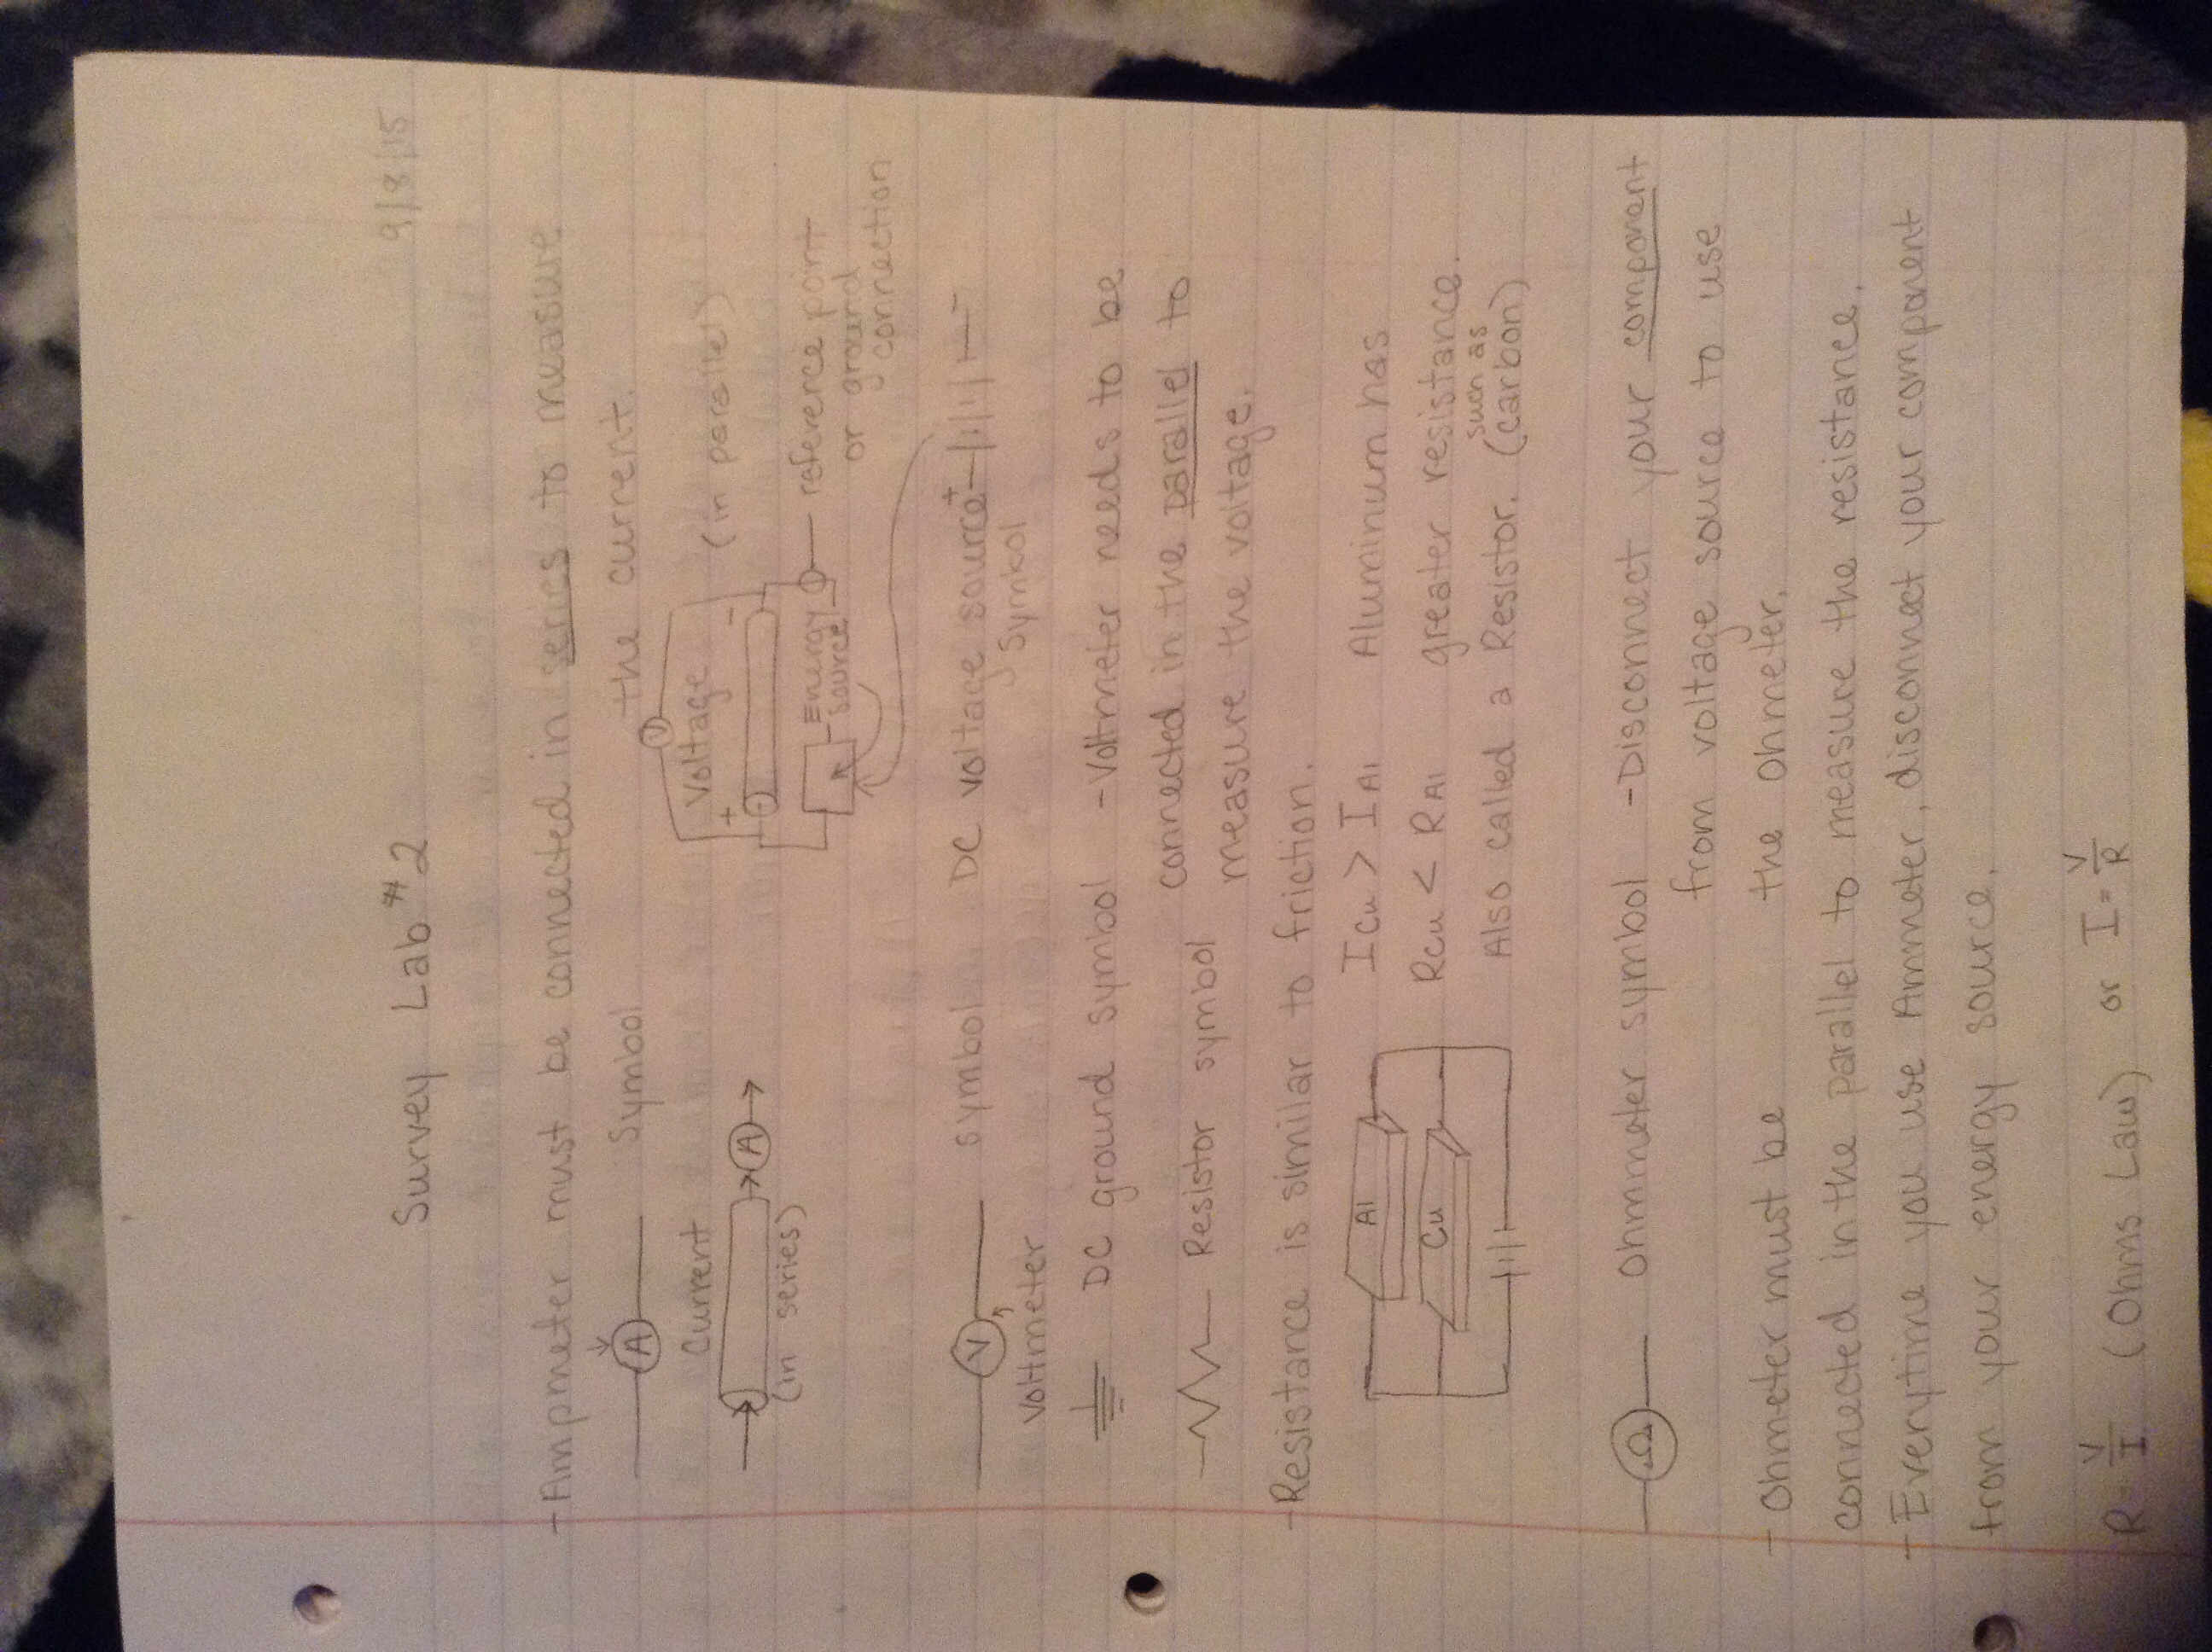 9/8/15
Survey Lab #2
- Ampmeter must be connected in series to measure
the current.
A Symbol
V
Current
Voltage (in parallel)
+ -
A
(in series)
Energy source
reference point
or ground
connection
V symbol DC voltage source + -
Symbol
Voltmeter
DC ground symbol - Voltmeter needs to be
connected in the parallel to
Resistor symbol measure the voltage.
- Resistance is similar to friction.
Al
Cu
Icu > IAl Aluminum has
Rcu < RAl greater resistance.
such as
Also called a Resistor. (carbon)
Ω Ohmmeter symbol - Disconnect your component
from voltage source to use
the Ohmeter.
- Ohmeter must be
connected in the parallel to measure the resistance.
- Everytime you use Ammeter, disconnect your component
from your energy source.
R = V/I (Ohms Law) or I = V/R